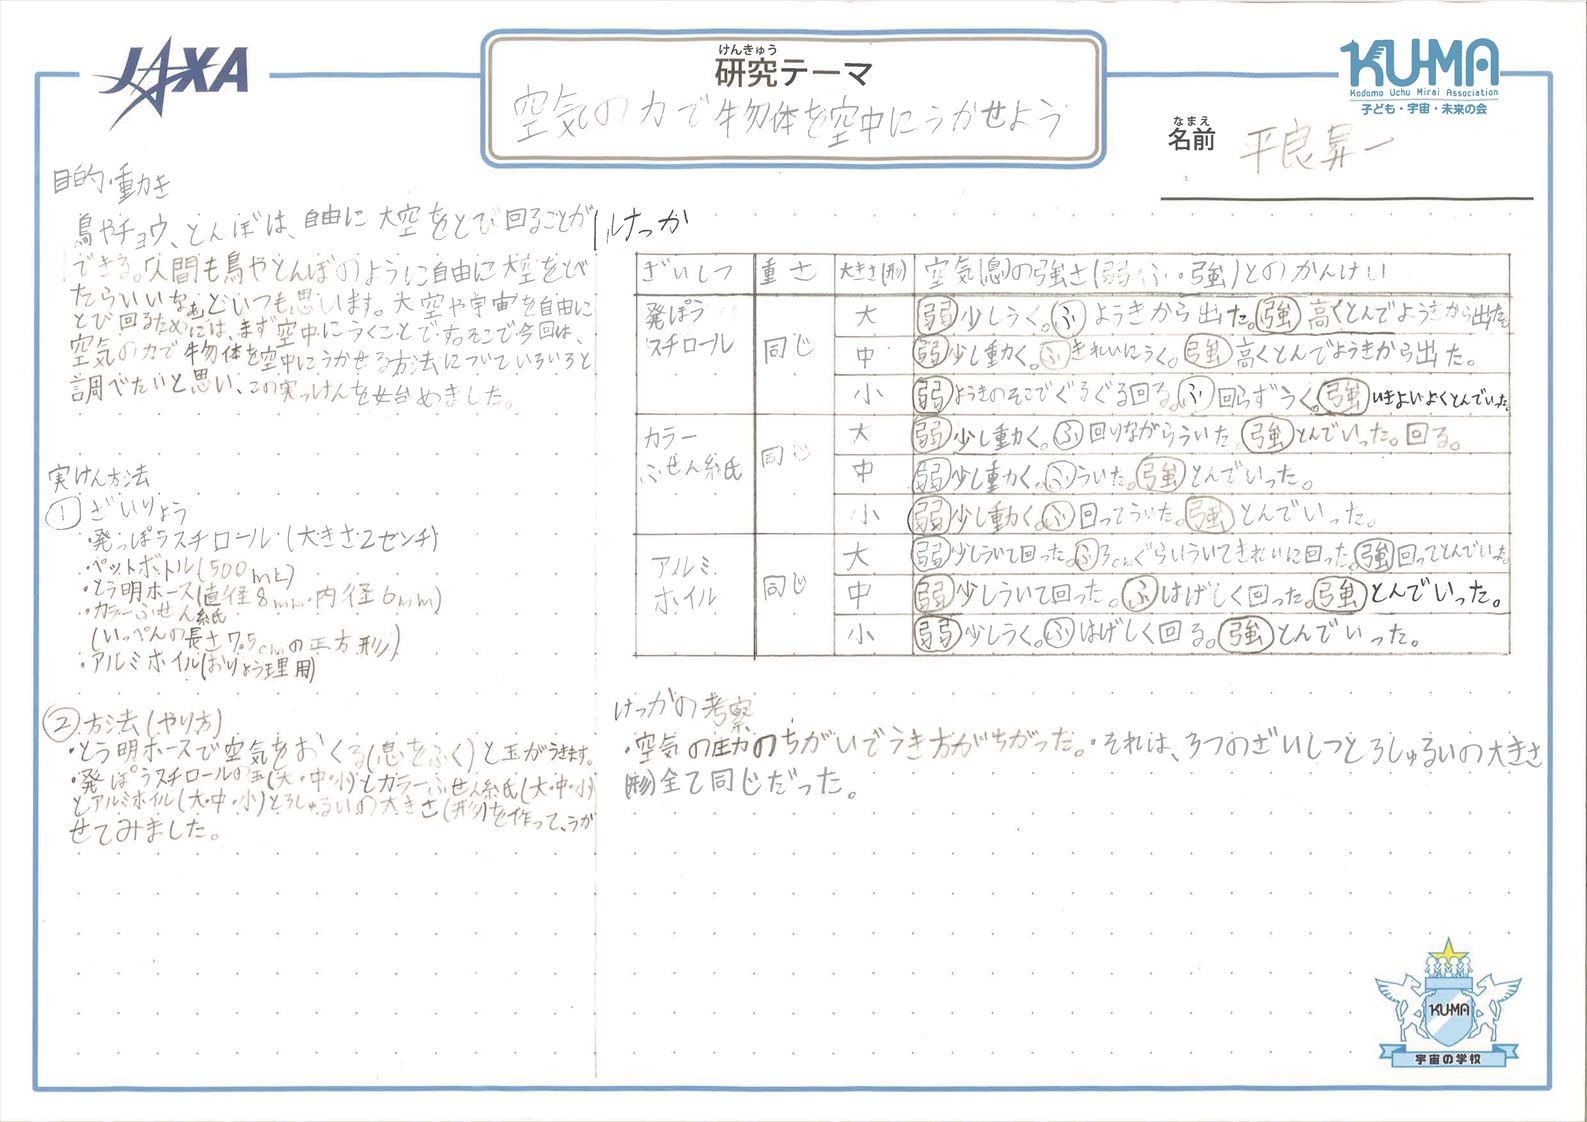 JAXA
けんきゅう
研究テーマ
空気の力で物体を空中にうかせよう
KU-MA
Kodomo Uchu Mirai Association
子ども・宇宙・未来の会
なまえ
名前 平良昇一
目的・動き
鳥やチョウ、とんぼは、自由に大空をとび回ることが
できる。「人間も鳥やとんぼのように自由に大空をとべ
たらいいなぁ」といつも思います。大空や宇宙を自由に
とび回るためには、まず空中にうくことです。そこで今回は、
空気の力で物体を空中にうかせる方法についていろいろと
調べたいと思い、この実っけんを始めました。
実けん方法
① ざいりょう
・発っぽうスチロール(大きさ2センチ)
・ペットボトル(500mL)
・とう明ホース(直径8mm・内径6mm)
・カラーふせん紙
(いっぺんの長さ7.5cmの正方形)
・アルミホイル(おりょう理用)
② 方法(やり方)
・とう明ホースで空気をおくる(息をふく)と玉がうきます。
・発ぽうスチロールの玉(大・中・小)とカラーふせん紙(大・中・小)
とアルミホイル(大・中・小)と3しゅるいの大きさ(形)を作って、うか
せてみました。
けっか
ざいしつ 重さ 大きさ(形) 空気(息)の強さ(弱・ふ・強)とのかんけい
発ぽう
スチロール 同じ
大 弱 少しうく。ふ ようきから出た。強 高くとんでようきから出た。
中 弱 少し動く。ふ きれいにうく。強 高くとんでようきから出た。
小 弱 ようきのそこでぐるぐる回る。ふ 回らずうく。強 いきよいよくとんでいった。
カラー
ふせん紙 同じ
大 弱 少し動く。ふ 回りながらういた。強 とんでいった。回る。
中 弱 少し動く。ふ ういた。強 とんでいった。
小 弱 少し動く。ふ 回ってういた。強 とんでいった。
アルミ
ホイル 同じ
大 弱 少しういて回った。ふ 3cmぐらいういてきれいに回った。強 回ってとんでいた
中 弱 少しういて回った。ふ はげしく回った。強 とんでいった。
小 弱 少しうく。ふ はげしく回る。強 とんでいった。
けっかの考察
・空気の圧力のちがいでうき方がちがった。・それは、3つのざいしつと3しゅるいの大きさ
(形)全て同じだった。
KU-MA
宇宙の学校